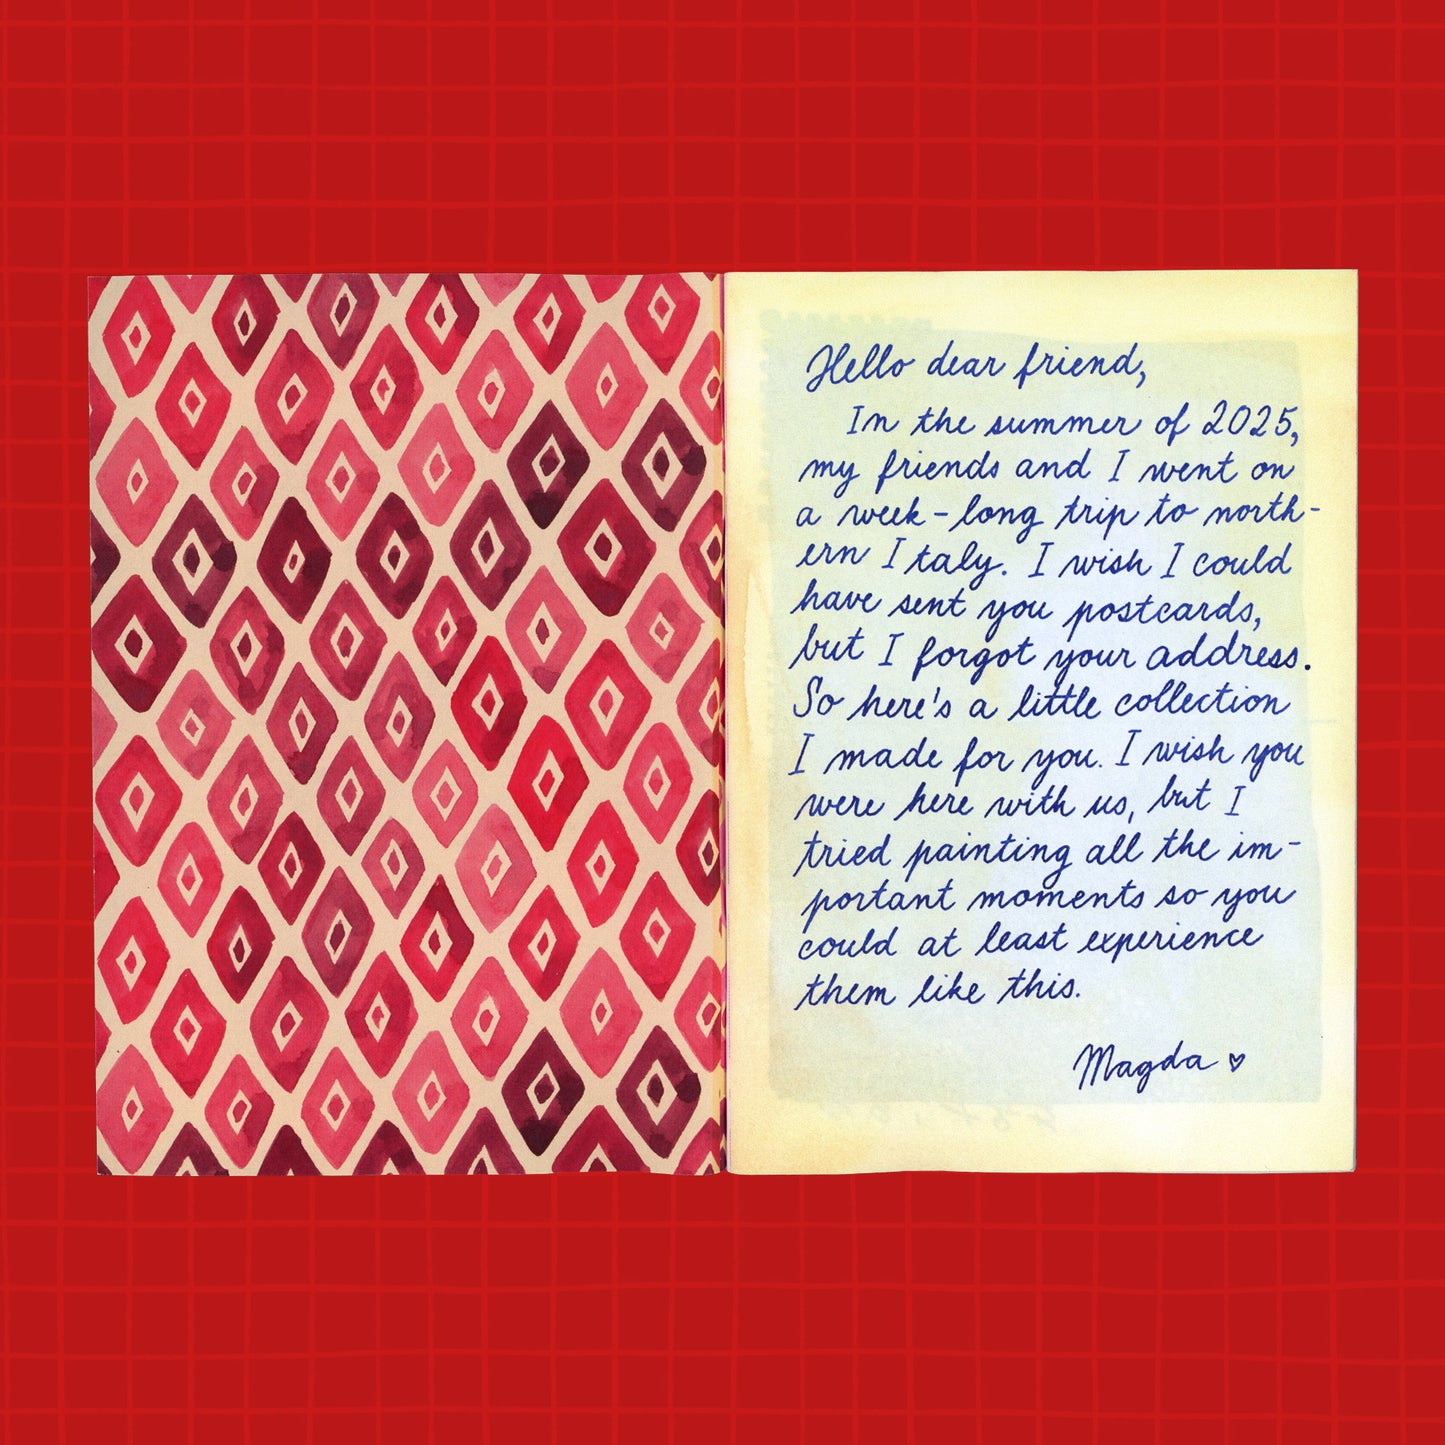 Hello dear friend,
In the summer of 2025,
my friends and I went on
a week-long trip to north-
ern Italy. I wish I could
have sent you postcards,
but I forgot your address.
So here's a little collection
I made for you. I wish you
were here with us, but I
tried painting all the im-
portant moments so you
could at least experience
them like this.
Magda ♡